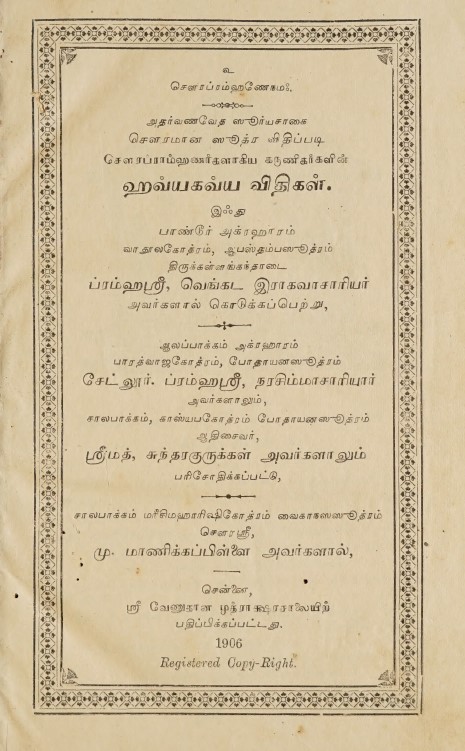 உ
சௌரப்ரம்ஹணேநமஃ.
அதர்வணவேத ஸூர்யசாகை
சௌரமான ஸூத்ர விதிப்படி
சௌரப்ராம்ஹணர்களாகிய கருணீகர்களின்
ஹவ்யகவ்ய விதிகள்.
இஃது
பாண்டூர் அக்ரஹாரம்
வாதூலகோத்ரம், ஆபஸ்தம்பஸூத்ரம்
திருக்கண்ணங்கந்தாடை
ப்ரம்ஹஸ்ரீ, வெங்கட இராகவாசாரியர்
அவர்களால் கொடுக்கப்பெற்று,
ஆலப்பாக்கம் அக்ரஹாரம்
பாரத்வாஜகோத்ரம், போதாயனஸூத்ரம்
சேட்லூர். ப்ரம்ஹஸ்ரீ, நரசிம்மாசாரியார்
அவர்களாலும்,
சாலபாக்கம், காஸ்யபகோத்ரம் போதாயனஸூத்ரம்
ஆதிசைவர்,
ஸ்ரீமத், சுந்தரகுருக்கள் அவர்களாலும்
பரிசோதிக்கப்பட்டு,
சாலபாக்கம் மரீசிமஹாரிஷிகோத்ரம் வைகாநஸஸூத்ரம்
சௌரஸ்ரீ,
மு. மாணிக்கப்பிள்ளை அவர்களால்,
சென்னை,
ஸ்ரீ வேணுகான முத்ராக்ஷரசாலையிற்
பதிப்பிக்கப்பட்டது.
1906
Registered Copy-Right.